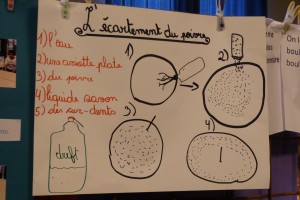 L'écartement du poivre
1) l'eau
2) une assiette plate
3) du poivre
4) liquide savon
5) des cur-dents
1)
2)
3)
4)
dreft
1
On l
boul
boul